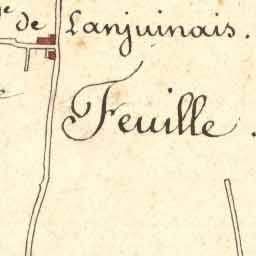 de Lanjuinais.
Feuille.